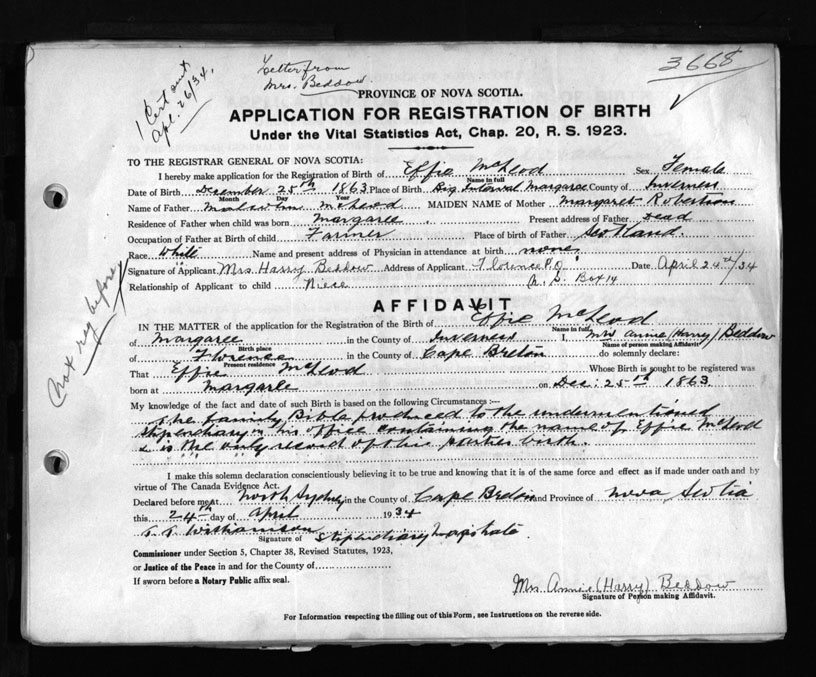 3668
Letter from
Mrs. Beddow.
1 Cert out
Apl. 26/34.
PROVINCE OF NOVA SCOTIA.
APPLICATION FOR REGISTRATION OF BIRTH
Under the Vital Statistics Act, Chap. 20, R. S. 1923.
TO THE REGISTRAR GENERAL OF NOVA SCOTIA:
I hereby make application for the Registration of Birth of Effie McLeod Sex Female
Name in full
Date of Birth December 25th 1863 Place of Birth Big Interval Margaree County of Inverness
Month Day Year
Name of Father Malcolm McLeod MAIDEN NAME of Mother Margaret Robertson
Residence of Father when child was born Margaree Present address of Father Dead
Occupation of Father at Birth of child Farmer Place of birth of Father Scotland.
Race White Name and present address of Physician in attendance at birth none
Signature of Applicant Mrs Harry Beddow Address of Applicant Florence P.O. Date April 24th/34
Relationship of Applicant to child Niece N. S. Box 14
Not reg before
AFFIDAVIT
IN THE MATTER of the application for the Registration of the Birth of Effie McLeod
Name in full
of Margaree in the County of Inverness I, Mrs Annie (Harry) Beddow
Birth place Name of person making Affidavit
of Florence in the County of Cape Breton do solemnly declare:
Present residence
That Effie McLeod Whose Birth is sought to be registered was
born at Margaree on Dec: 25th 1863
My knowledge of the fact and date of such Birth is based on the following Circumstances :—
The family Bible produced to the undermentioned
stipendiary in his office containing the name of Effie McLeod
& is the only record of this parties birth.
I make this solemn declaration conscientiously believing it to be true and knowing that it is of the same force and effect as if made under oath and by
virtue of The Canada Evidence Act.
Declared before me at North Sydney in the County of Cape Breton and Province of Nova Scotia
this 24th day of April 1934
Stipendiary Magistrate
Signature of
Commissioner under Section 5, Chapter 38, Revised Statutes, 1923,
or Justice of the Peace in and for the County of
If sworn before a Notary Public affix seal.
Mrs Annie (Harry) Beddow
Signature of Person making Affidavit.
For Information respecting the filling out of this Form, see Instructions on the reverse side.